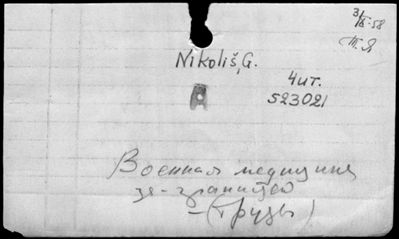 3/IX-58
Т. Я
Nikoliš, G.
4 ит.
523021
Военная медицина
за-границей
- (труды)